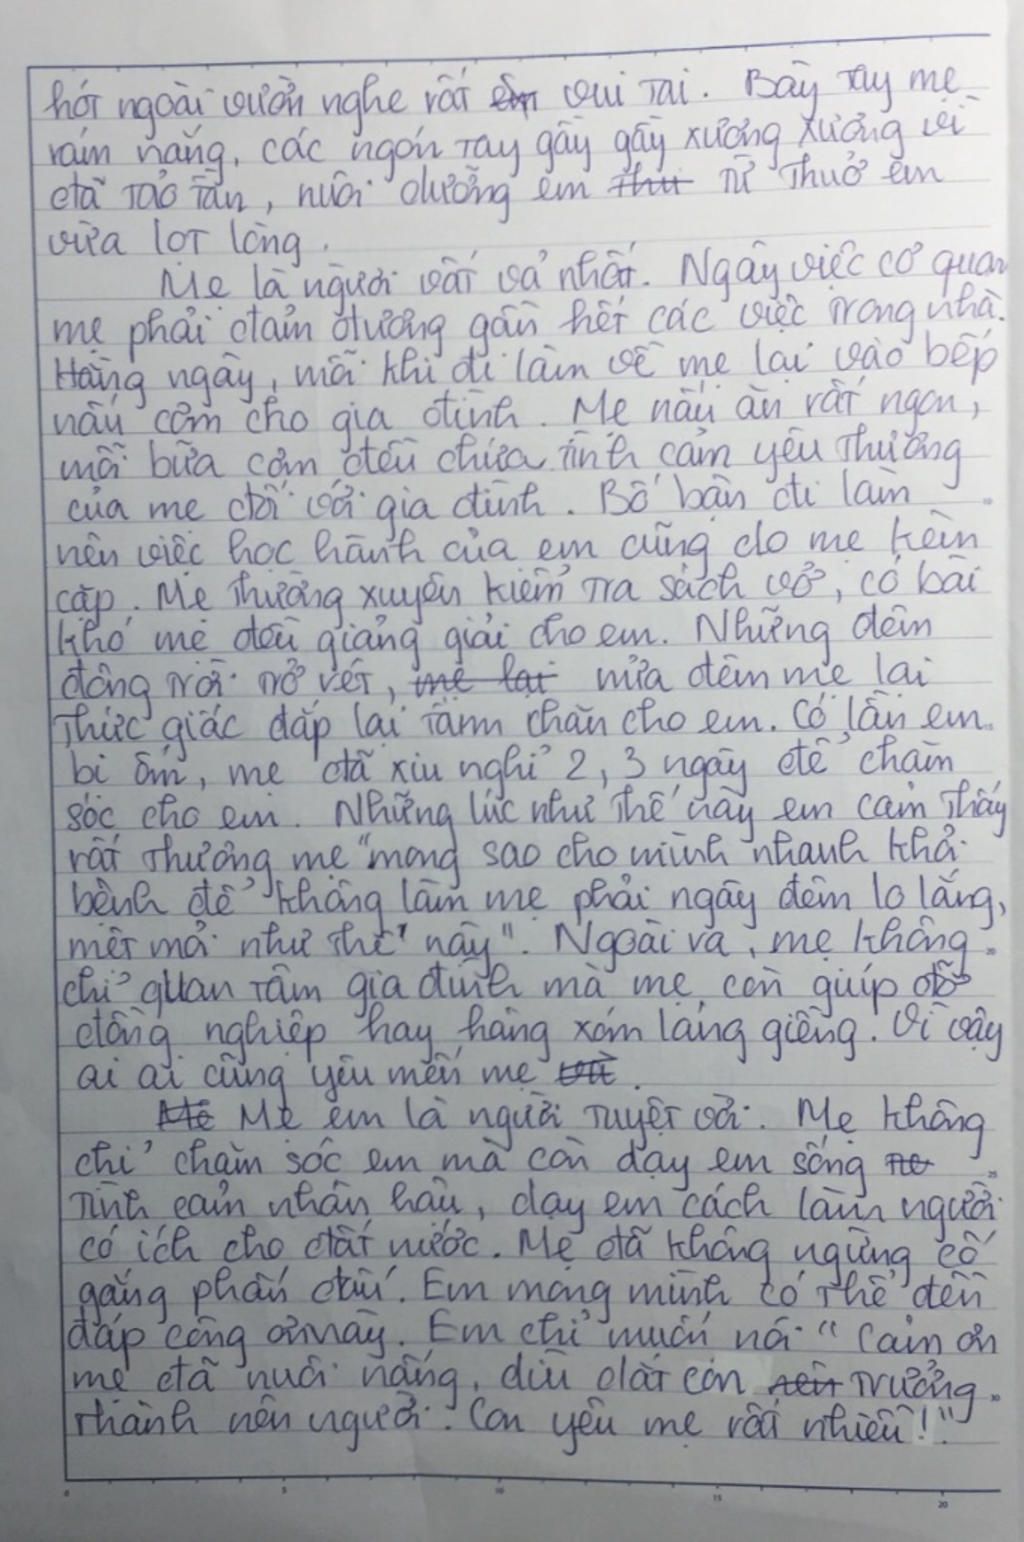 hót ngoài vườn nghe rất êm vui tai. Bày tay mẹ
rám nắng, các ngón tay gầy gầy xương xương vì
đã tảo tần, nuôi dưỡng em thu từ thuở em
vừa lọt lòng.
Mẹ là người vất vả nhất. Ngày việc cơ quan
mẹ phải đảm đương gần hết các việc trong nhà.
Hàng ngày, mỗi khi đi làm về mẹ lại vào bếp
nấu cơm cho gia đình. Mẹ nấu ăn rất ngon,
mỗi bữa cơm đều chứa tình cảm yêu thương
của mẹ đối với gia đình. Bố bận đi làm
nên việc học hành của em cũng do mẹ kèm
cặp. Mẹ thường xuyên kiểm tra sách vở, có bài
khó mẹ đều giảng giải cho em. Những đêm
đông trời trở rét, mẹ lại nửa đêm mẹ lại
thức giấc đắp lại tấm chăn cho em. Có lần em
bị ốm, mẹ đã xin nghỉ 2, 3 ngày để chăm
sóc cho em. Những lúc như thế này em cảm thấy
rất thương mẹ "mong sao cho mình nhanh khỏi
bệnh để không làm mẹ phải ngày đêm lo lắng,
mệt mỏi như thế này". Ngoài ra, mẹ không
chỉ quan tâm gia đình mà mẹ còn giúp đỡ
đồng nghiệp hay hàng xóm láng giềng. Vì vậy
ai ai cũng yêu mến mẹ và.
Mẹ Mẹ em là người tuyệt vời. Mẹ không
chỉ chăm sóc em mà còn dạy em sống
tình cảm nhân hậu, dạy em cách làm người
có ích cho đất nước. Mẹ đã không ngừng cố
gắng phấn đấu. Em mong mình có thể đền
đáp công ơn này. Em chỉ muốn nói "Cảm ơn
mẹ đã nuôi nấng, dìu dắt con nên trưởng
thành nên người. Con yêu mẹ rất nhiều!"